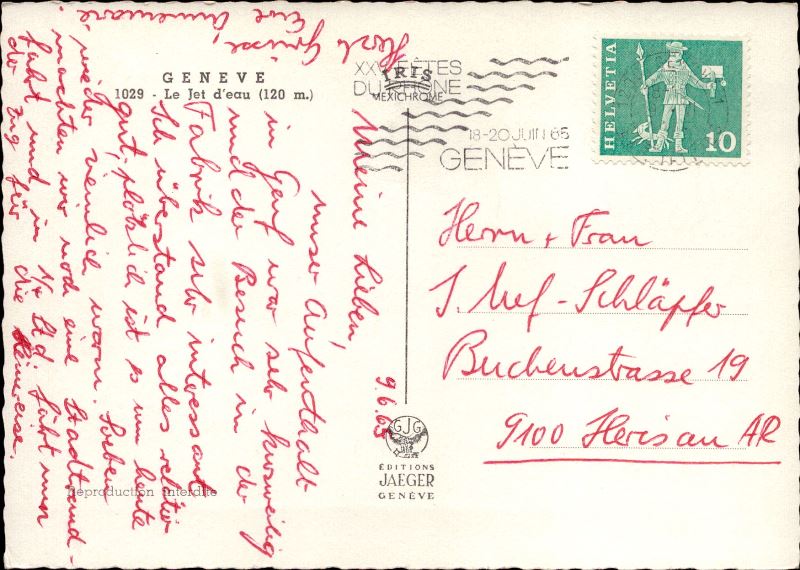 GENEVE
1029 - Le Jet d'eau (120 m.)
IRIS
MEXICHROME
XXVI FÊTES
DU RHONE
18-20 JUIN 65
GENÈVE
HELVETIA
10
9.6.65
Meine Lieben,
unser Aufenthalt
in Genf war sehr kurzweilig
und der Besuch in der
Fabrik sehr interessant
Ich überstand alles relativ
gut, plötzlich ist es nun heute
wieder ziemlich warm. Soeben
machten wir noch eine Stadtrund-
fahrt und in ¼ Std fährt unser
Zug für die Heimreise.
Herzl. Grüsse
Eure Annemarie
Herrn + Frau
J. Nef-Schläpfer
Buchenstrasse 19
9100 Herisau AR
GJG
ÉDITIONS
JAEGER
GENÈVE
Reproduction interdite